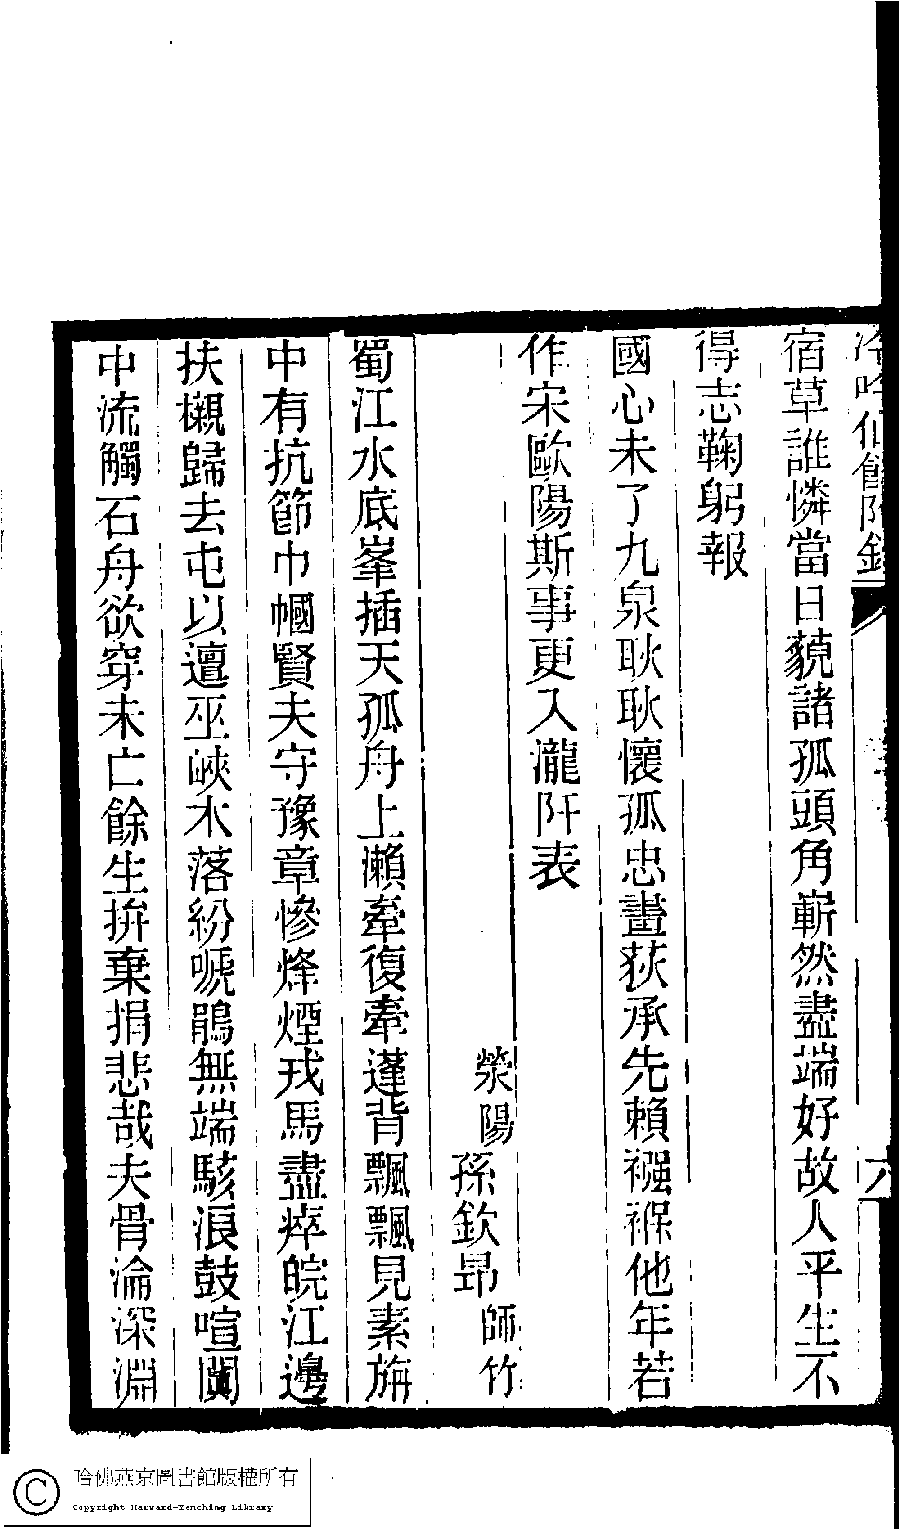 冷吟仙館附錄
六
宿草誰憐當日藐諸孤頭角嶄然盡端好故人平生不
得志鞠躬報
國心未了九泉耿耿懷孤忠畫荻承先賴襁褓他年若
作宋歐陽斯事更入瀧阡表
滎陽孫欽昻師竹
蜀江水底峯插天孤舟上瀨牽復牽蓬背飄飄見素旃
中有抗節巾幗賢夫守豫章慘烽煙戎馬盡瘁皖江邊
扶櫬歸去屯以邅巫峽木落紛嗁鵑無端駭浪鼓喧闐
中流觸石舟欲穿未亡餘生拚棄捐悲哉夫骨淪深淵
哈佛燕京圖書館版權所有
Copyright Harvard-Yenching Library